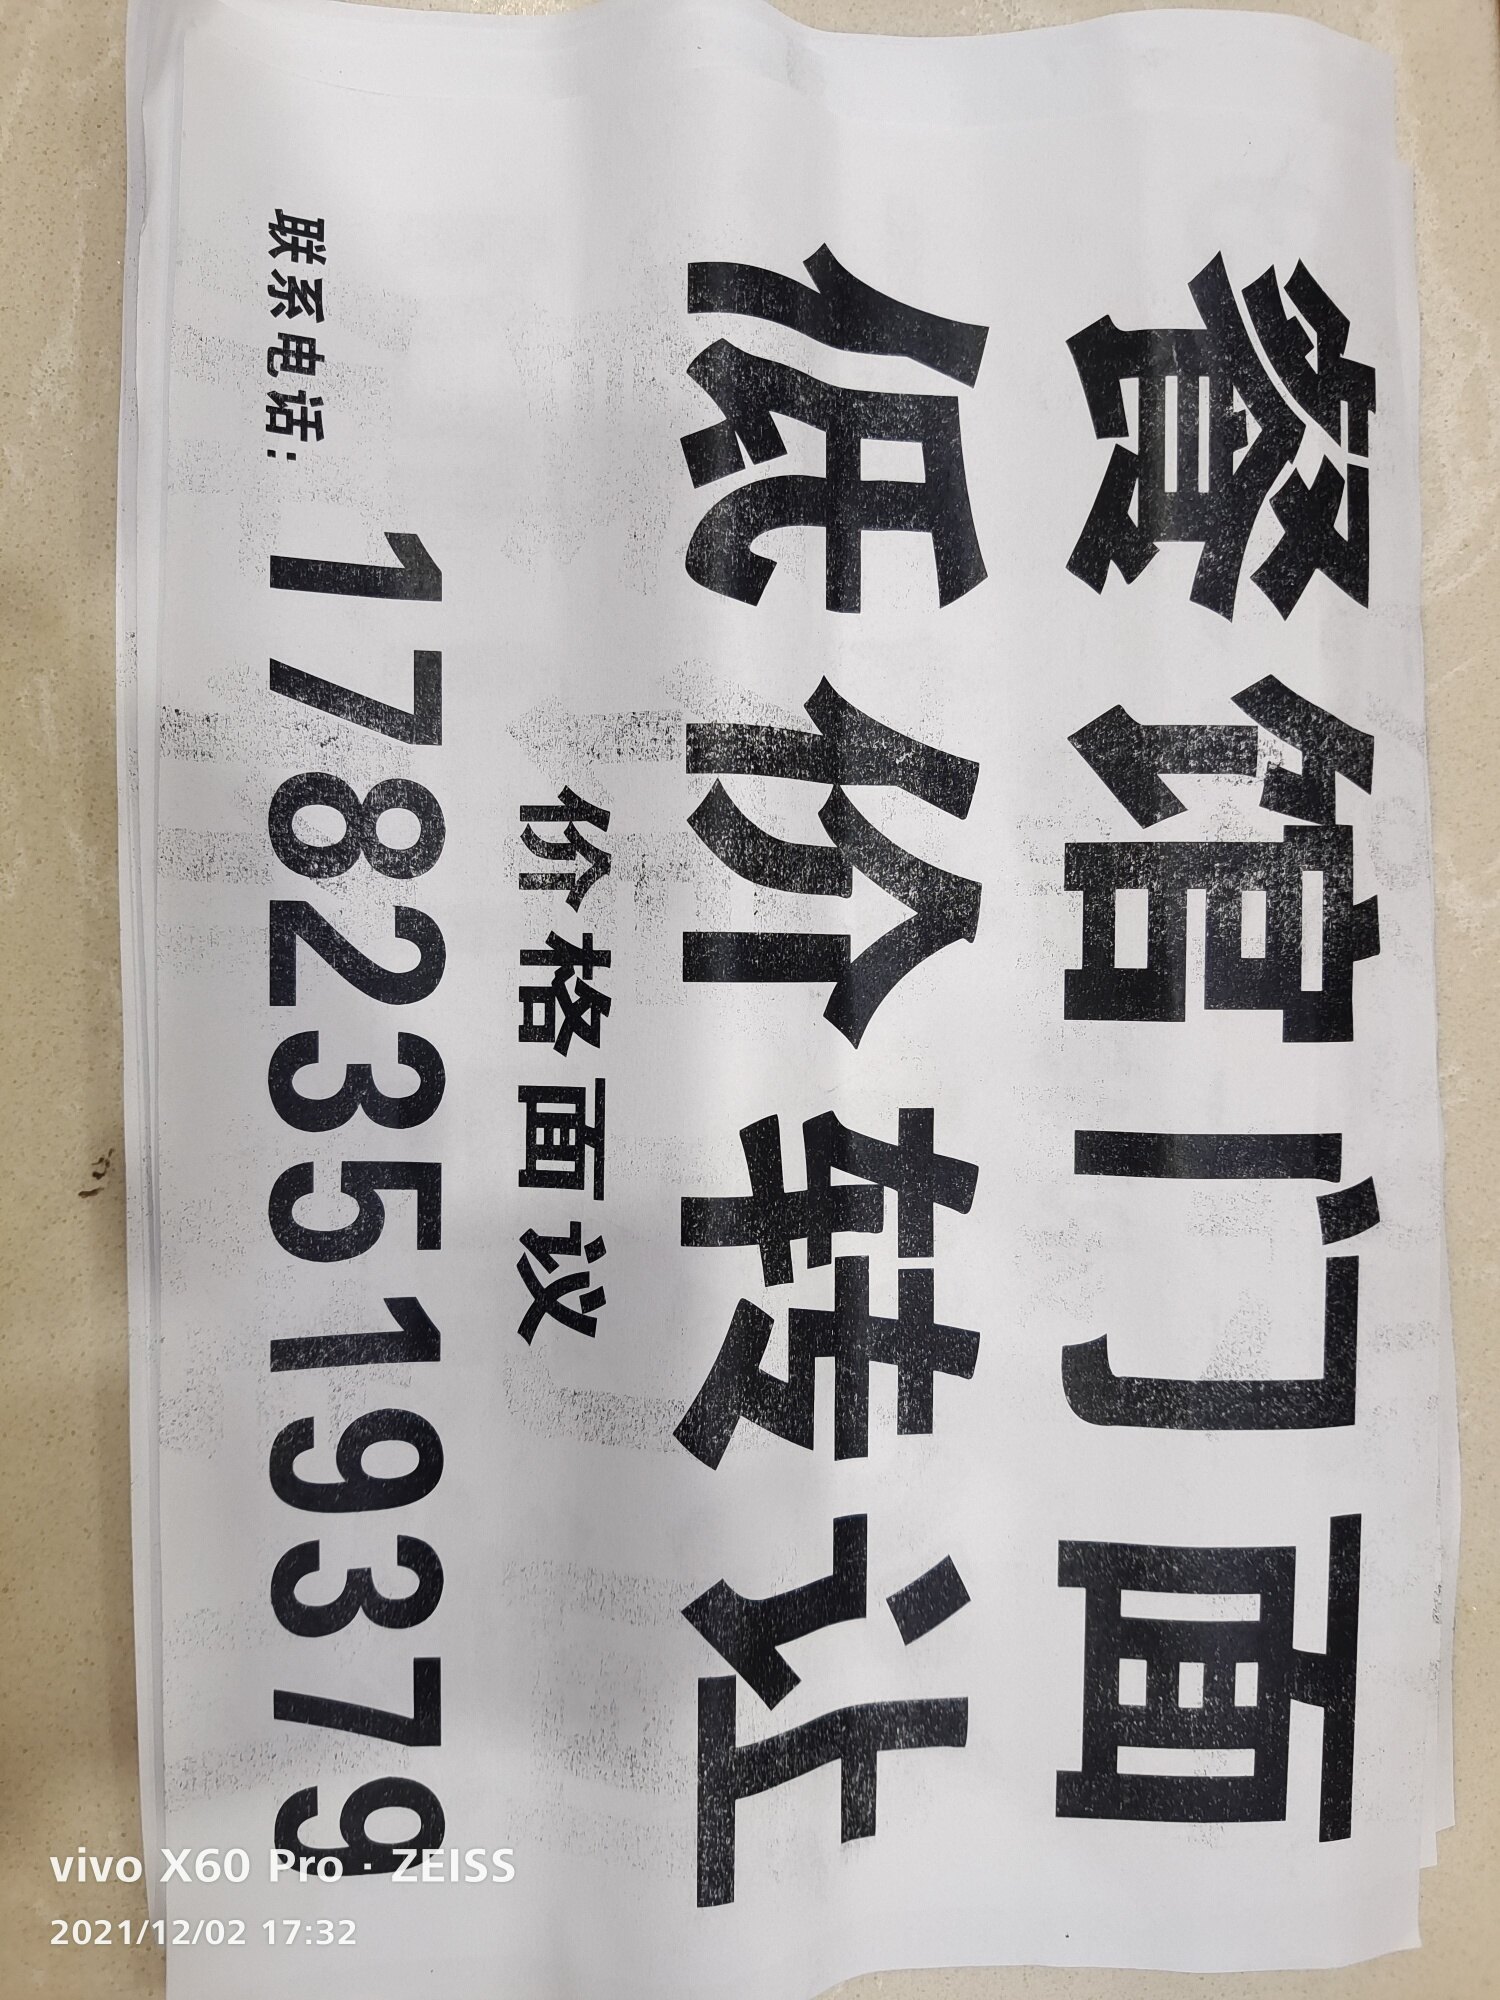 餐馆门面
低价转让
价格面议
联系电话：17823519379
vivo X60 Pro · ZEISS
2021/12/02 17:32